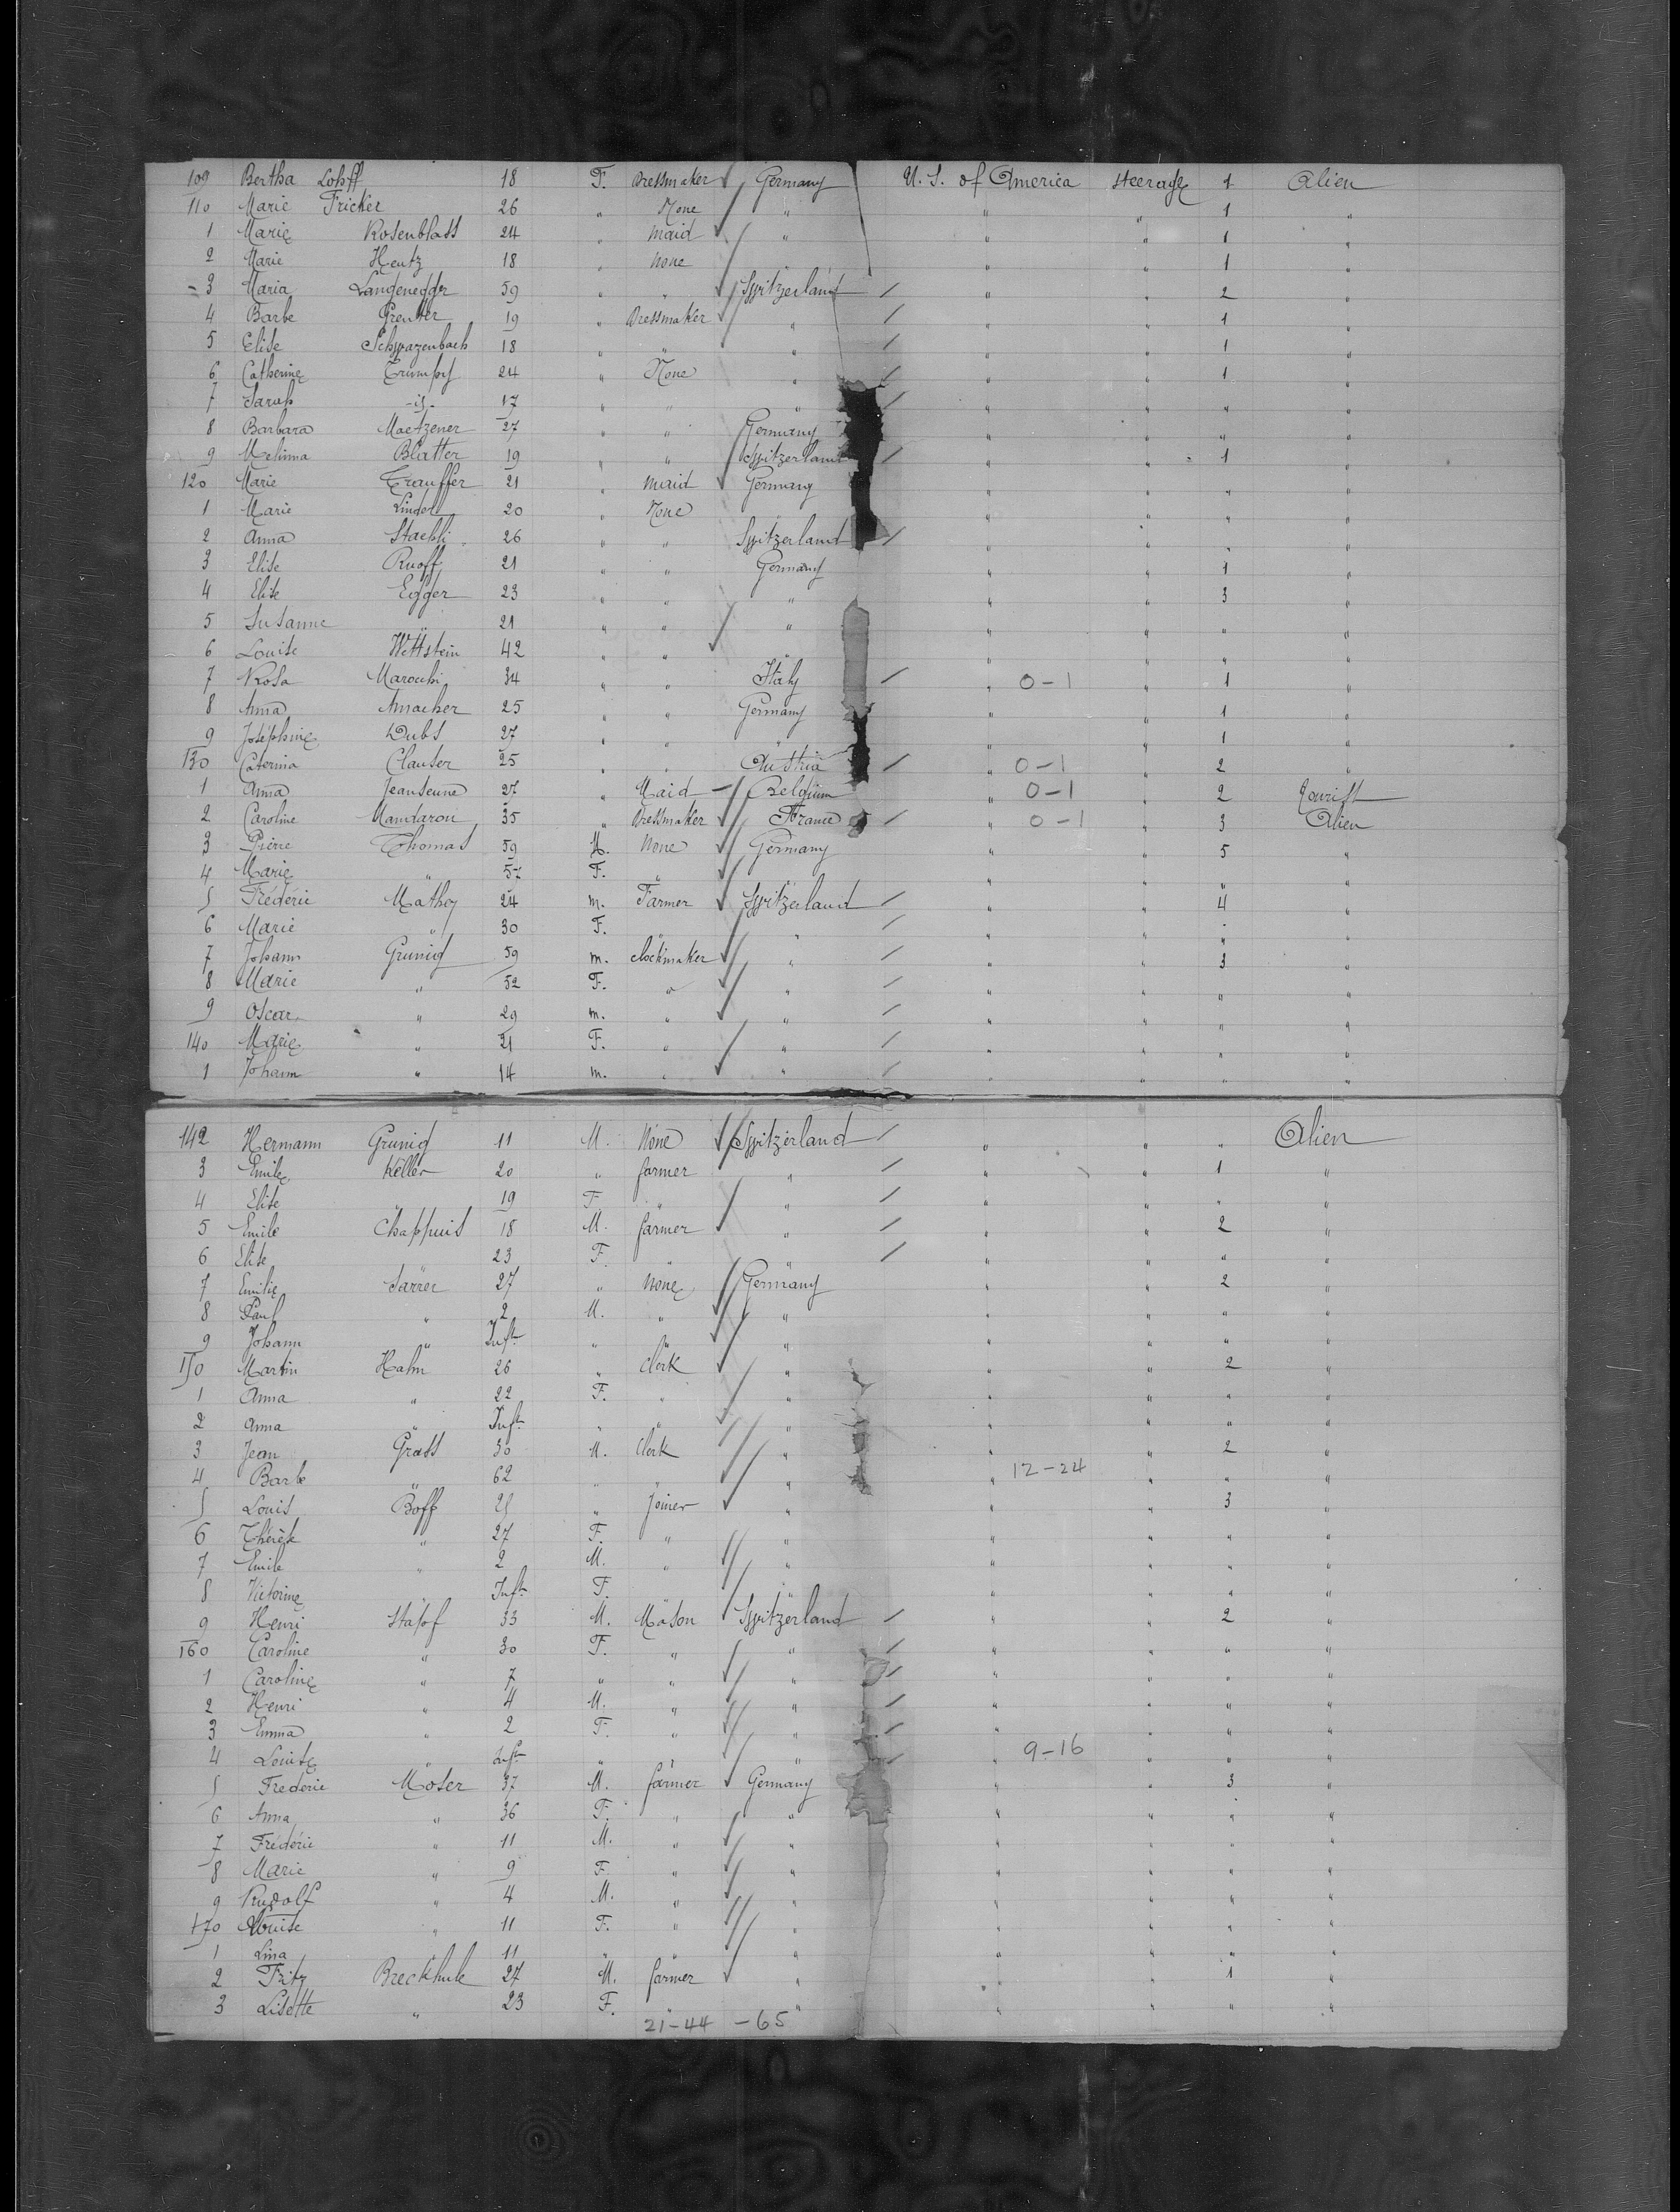 109 Bertha Lohff 18 F. Dressmaker Germany U. S. of America Steerage 1 Alien
110 Marie Fricker 26 " None " " " 1 "
1 Marie Rosenblatt 24 " Maid " " " 1 "
2 Marie Hentz 18 " None " " " 1 "
3 Maria Langenegger 59 " " Switzerland " " 2 "
4 Barbe Greuter 19 " Dressmaker " " " 1 "
5 Elise Schwazenbach 18 " " " " " 1 "
6 Catherine Trumpy 24 " None " " " 1 "
7 Sarah -id- 17 " " " " " " "
8 Barbara Maetzener 27 " " Germany " " " "
9 Melinna Blatter 19 " " Switzerland " " 1 "
120 Marie Trauffer 21 " Maid Germany " " " "
1 Marie Linder 20 " None " " " "
2 Anna Staehli 26 " " Switzerland " " " "
3 Elise Ruoff 21 " " Germany " " 1 "
4 Elise Egger 23 " " " " " 3 "
5 Susanne " 21 " " " " " " "
6 Louise Wettstein 42 " " " " " " "
7 Rosa Marocchi 34 " " Italy " 0-1 " 1 "
8 Anna Amacher 25 " " Germany " " 1 "
9 Joséphine Dubs 27 " " " " " 1 "
130 Caterina Clauser 25 " " Austria " 0-1 " 2 "
1 Anna Jeanseune 27 " Maid Belgium " 0-1 " 2 Tourist
2 Caroline Mandaron 35 " Dressmaker France " 0-1 " 3 Alien
3 Pierre Thomas 59 M. None Germany " " 5 "
4 Marie " 57 F. " " " " " "
5 Fréderic Mathey 24 m. Farmer Switzerland " " 4 "
6 Marie " 30 F. " " " " " "
7 Johann Grunig 59 m. Clockmaker " " " 3 "
8 Marie " 52 F. " " " " " "
9 Oscar " 29 m. " " " " " "
140 Marie " 21 F. " " " " " "
1 Johann " 14 m. " " " " " "
142 Hermann Grunig 11 M. None Switzerland " " " Alien
3 Emile Keller 20 " farmer " " " 1 "
4 Elise " 19 F. " " " " " "
5 Emile Chappuis 18 M. farmer " " " 2 "
6 Elise " 23 F. " " " " " "
7 Emilie Sarrer 27 " None Germany " " 2 "
8 Paul " 2 M. " " " " " "
9 Johann " Inft. " " " " " " "
150 Martin Hahn 26 " Clerk " " " 2 "
1 Anna " 22 F. " " " " " "
2 Anna " Inft. " " " " " " "
3 Jean Grass 30 M. Clerk " " " 2 "
4 Barbe " 62 " " " " 12-24 " " "
5 Louis Boff 28 " Joiner " " " 3 "
6 Thérèse " 27 F. " " " " " "
7 Emile " 2 M. " " " " " "
8 Victorine " Inft. F. " " " " " "
9 Henri Stapf 33 M. Mason Switzerland " " 2 "
160 Caroline " 30 F. " " " " " "
1 Caroline " 7 " " " " " " "
2 Henri " 4 M. " " " " " "
3 Emma " 2 F. " " " " " "
4 Louise " Inft. " " " " 9-16 " " "
5 Frederic Moser 37 M. farmer Germany " " 3 "
6 Anna " 36 F. " " " " " "
7 Fréderic " 11 M. " " " " " "
8 Marie " 9 F. " " " " " "
9 Rudolf " 4 M. " " " " " "
170 Louise " 11 F. " " " " " "
1 Lina " 11 " " " " " " "
2 Fritz Breckhule 27 M. farmer " " " 1 "
3 Lisette " 23 F. " " " " " "
21-44 -65